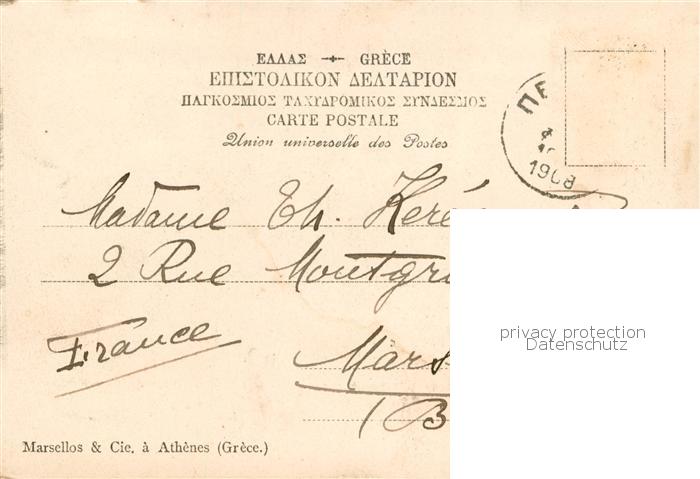 ΕΛΛΑΣ GRÈCE
ΕΠΙΣΤΟΛΙΚΟΝ ΔΕΛΤΑΡΙΟΝ
ΠΑΓΚΟΣΜΙΟΣ ΤΑΧΥΔΡΟΜΙΚΟΣ ΣΥΝΔΕΣΜΟΣ
CARTE POSTALE
Union universelle des Postes
ΠΕ
1908
Madame Th. Keré
2 Rue Montgr
France
Mars
(B
privacy protection
Datenschutz
Marsellos & Cie. à Athènes (Grèce.)